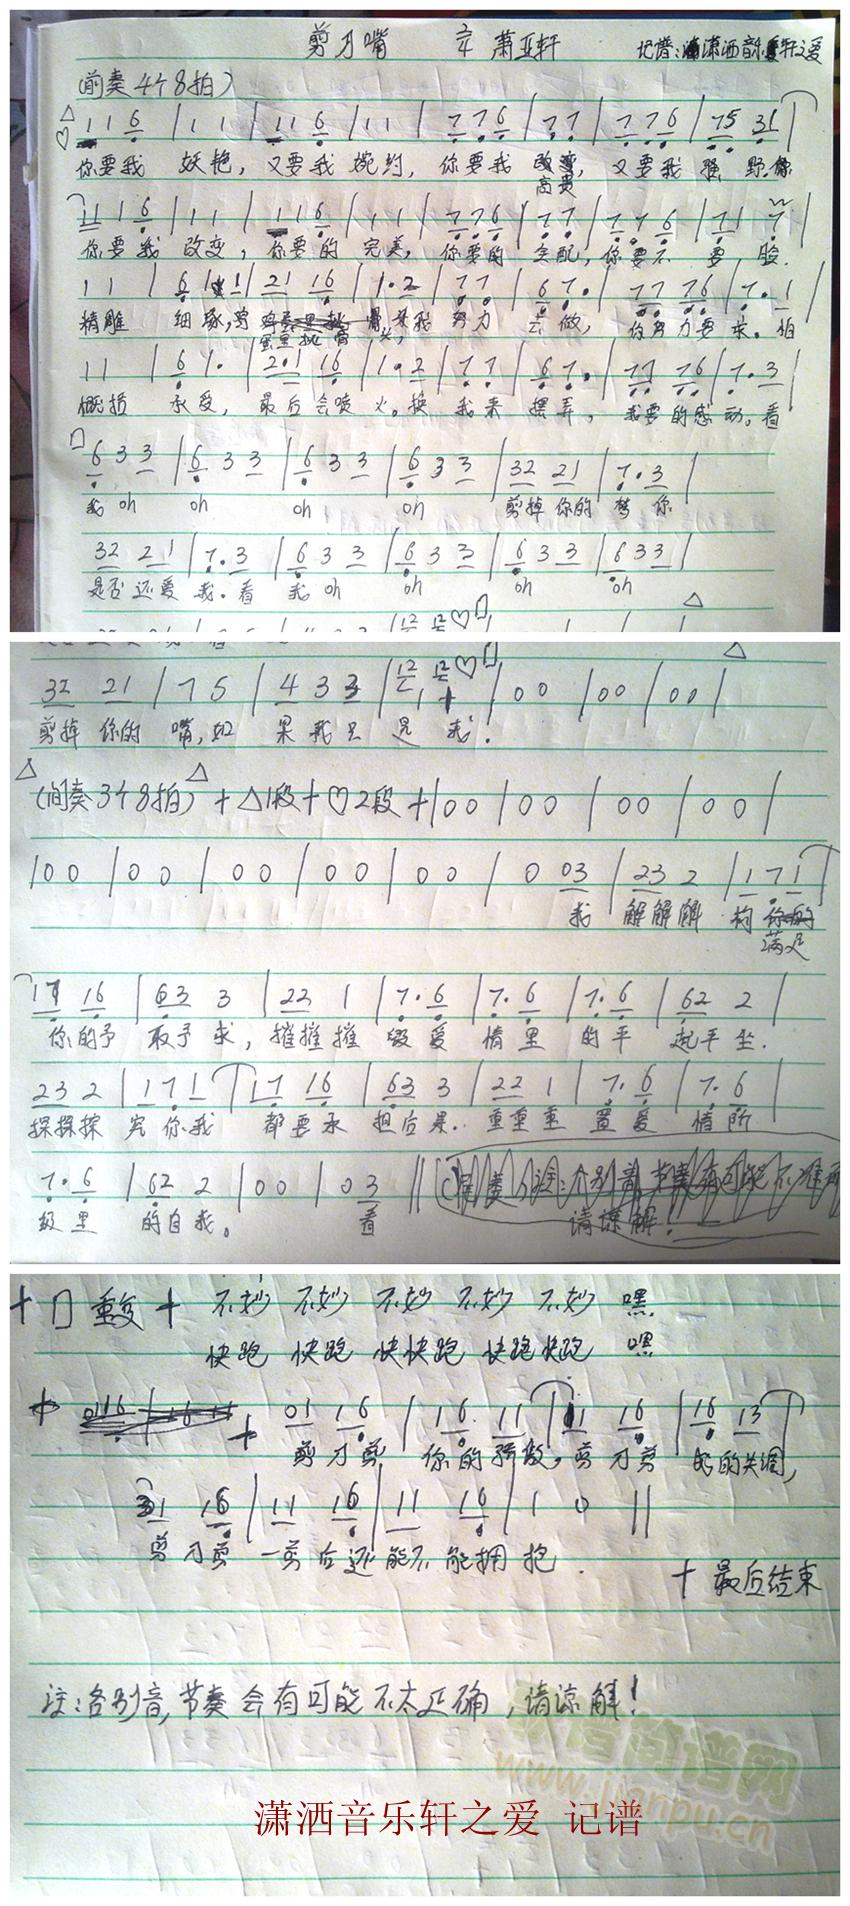 剪刀嘴 2/4 萧亚轩 记谱:潇洒音乐轩之爱
(前奏4个8拍)
△ ♡ 1 1 6 | 1 1 | 1 1 6 | 1 1 | 7 7 6 | 7 7 | 7 7 6 | 75 31 |
你要我 妖艳, 又要我 婉约, 你要我 高贵, 又要我 野.你
11 1 6 | 1 1 | 1 1 6 | 1 1 | 7 7 6 | 7 7 | 7 7 6 | 7 1 7 |
你要我 改变, 你要的 完美, 你要的 全配, 你要不 要 脸.
1 1 | 6 1 1 | 21 16 | 1·2 | 7 7 | 6 7· | 77 76 | 7·1 |
精雕 细琢,鸡 蛋里挑 骨头, 我 努力 去做, 你努力要求。怕
1 1 | 6 1· | 2·1 16 | 1·2 | 7 7 | 6 7· | 77 76 | 7·3 |
概括 承受, 最后会喷 火。换 我来 摆弄, 我要的感动。看
6 3 3 | 6 3 3 | 6 3 3 | 6 3 3 | 32 21 | 7·3 |
我 oh oh oh oh 剪掉你的 梦 你
32 21 | 7·3 | 6 3 3 | 6 3 3 | 6 3 3 | 6 3 3 |
是否还爱 我.看 我 oh oh oh oh
32 21 | 7 5 | 4 3 3 | 12 12 ♡ | 1 + | 00 | 00 | 00 | △
剪掉你的 嘴,如 果我只 是 我.
△(间奏3个8拍)△ + △1段 + ♡2段 + | 00 | 00 | 00 | 00 |
| 00 | 00 | 00 | 00 | 00 | 0 03 | 23 2 | 1 7 1 |
我 解解解 构 你
满足
17 16 | 63 3 | 22 1 | 7·6 | 7·6 | 7·6 | 62 2 |
你的予 取予求, 摧摧摧 毁 爱 情里 的平 起平坐.
23 2 | 1 7 1 | 17 16 | 63 3 | 22 1 | 7·6 | 7·6 |
探探探 究你我 都要承 担后果. 重重重 置爱 情阶
7·6 | 62 2 | 00 | 0 3 ||
级里 的自我。 看 请谅解
+ 重复 + 不妙 不妙 不妙 不妙 不妙 嘿
快跑 快跑 快快跑 快跑快跑 嘿
+ + 01 16 | 16 11 | 11 16 | 16 13 |
剪刀剪 你的骄傲,剪刀剪 的笑调,
31 16 | 11 16 | 11 16 | 1 0 ||
剪刀剪 一剪后还能不能拥抱.
+ 最后结束
注:各别音,节奏会有可能不太正确,请谅解!
www.jianpu.cn
潇洒音乐轩之爱 记谱